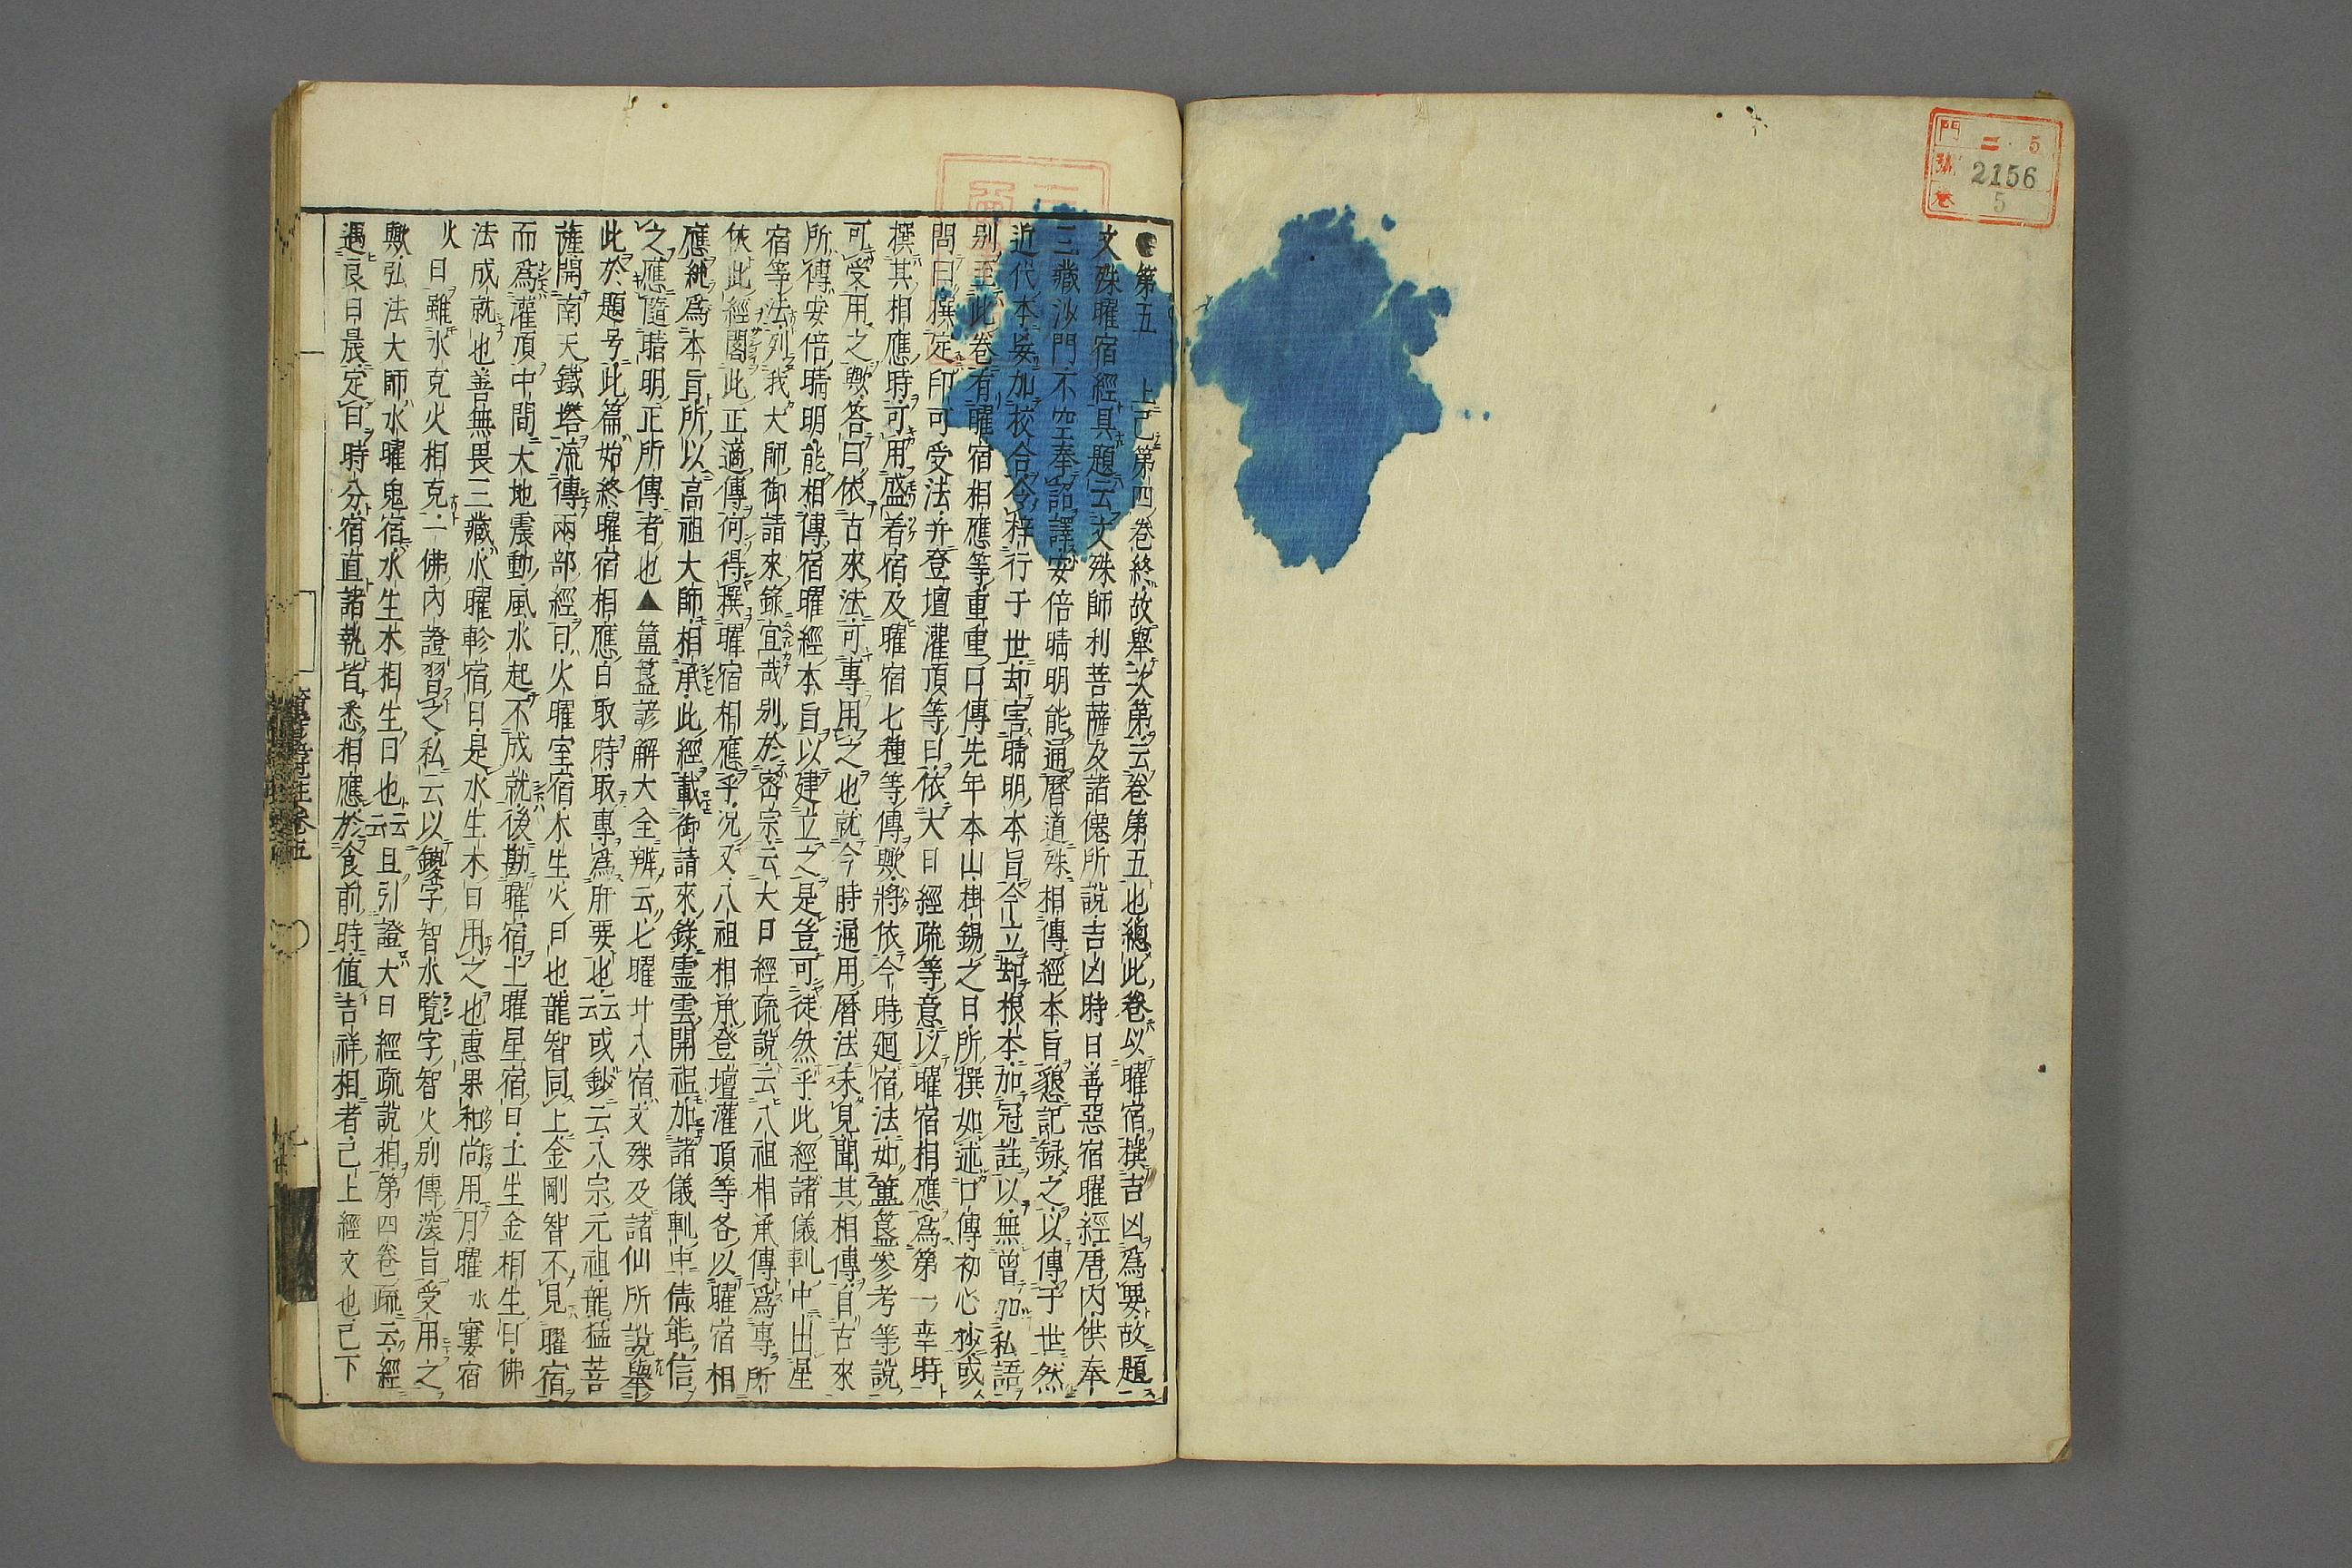 門 二 5
號 2156
卷 5
●第五 上已第四卷終故舉次第云卷第五也總此卷以曜宿撰吉凶爲要故題
文殊曜宿經具題云文殊師利菩薩及諸僊所說吉凶時日善惡宿曜經唐内供奉
三藏沙門不空奉詔譯安倍晴明能通曆道殊相傳經本旨懇記録之以傳于世然
近代本妄加校合令梓行于世却害晴明本旨今立却根本加冠註以無曾加私語
别至此卷有曜宿相應等重重口傳先年本山掛錫之日所撰如述口傳初心抄或
問曰撰定印可受法并登壇灌頂等日依大日經疏等意以曜宿相應爲第一幸時
撰其相應時可用盛者宿及曜宿七種等傳歟將依今時廻宿法如簠簋參考等說
可受用之歟答曰依古來法可專用之也就今時通用曆法未見聞其相傳自古來
所傳安倍晴明能相傳宿曜經本旨以建立之是豈可徒然乎此經諸儀軌中出星
宿等法列我大師御請來錄宜哉别於密宗云大日經疏說云八祖相承傳爲專所
依此經閣此正適傳何得撰曜宿相應乎况又八祖相承登壇灌頂等各以曜宿相
應純爲本旨所以高祖大師相承此經載御請來錄霊雲開祖加諸儀軌中倩能信
之應隨晴明正所傳者也▲簠簋諺解大全辨云七曜廿八宿文殊及諸仙所說舉
此於題号此篇始終曜宿相應日取時取專爲肝要也云云或鈔云八宗元祖龍猛菩
薩開南天鐵塔流傳兩部經日火曜室宿木生火日也龍智同上金剛智不見曜宿
而爲灌頂中間大地震動風水起不成就後勘曜宿土曜星宿日土生金相生日佛
法成就也善無畏三藏火曜軫宿日是水生木日用之也惠果和尚用月曜水寠宿
火日雖水克火相克一佛内證習之私云以鑁字智水覽字智火别傳深旨受用之
歟弘法大師水曜鬼宿水生木相生日也云云且引證大日經疏說相第四卷疏云經
遇良日晨定日時分宿直諸執皆悉相應於食前時值吉祥相者已上經文也已下